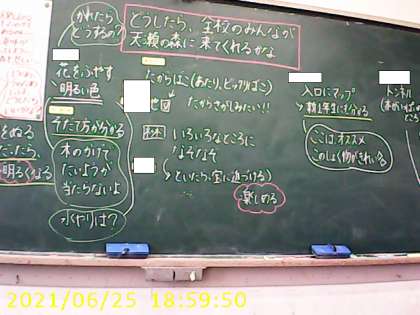 どうしたら、全校のみんなが
天瀬の森に来てくれるかな
かれたら
どうするの?
花をふやす
明るい色
そだて方が分かる
木のかげで
たいようが
当たらないよ
水やりは?
をぬる
たら、
明るくなる
たからばこ(あたり、ビックリばこ)
地図
たからさがしみたい!!
いろいろなところに
なぞなぞ
といたら、宝に近づける
楽しめる
入口にマップ
ここはオススメ
このしょく物がきれいなど
トンネル
ところ
2021/06/25 18:59:50